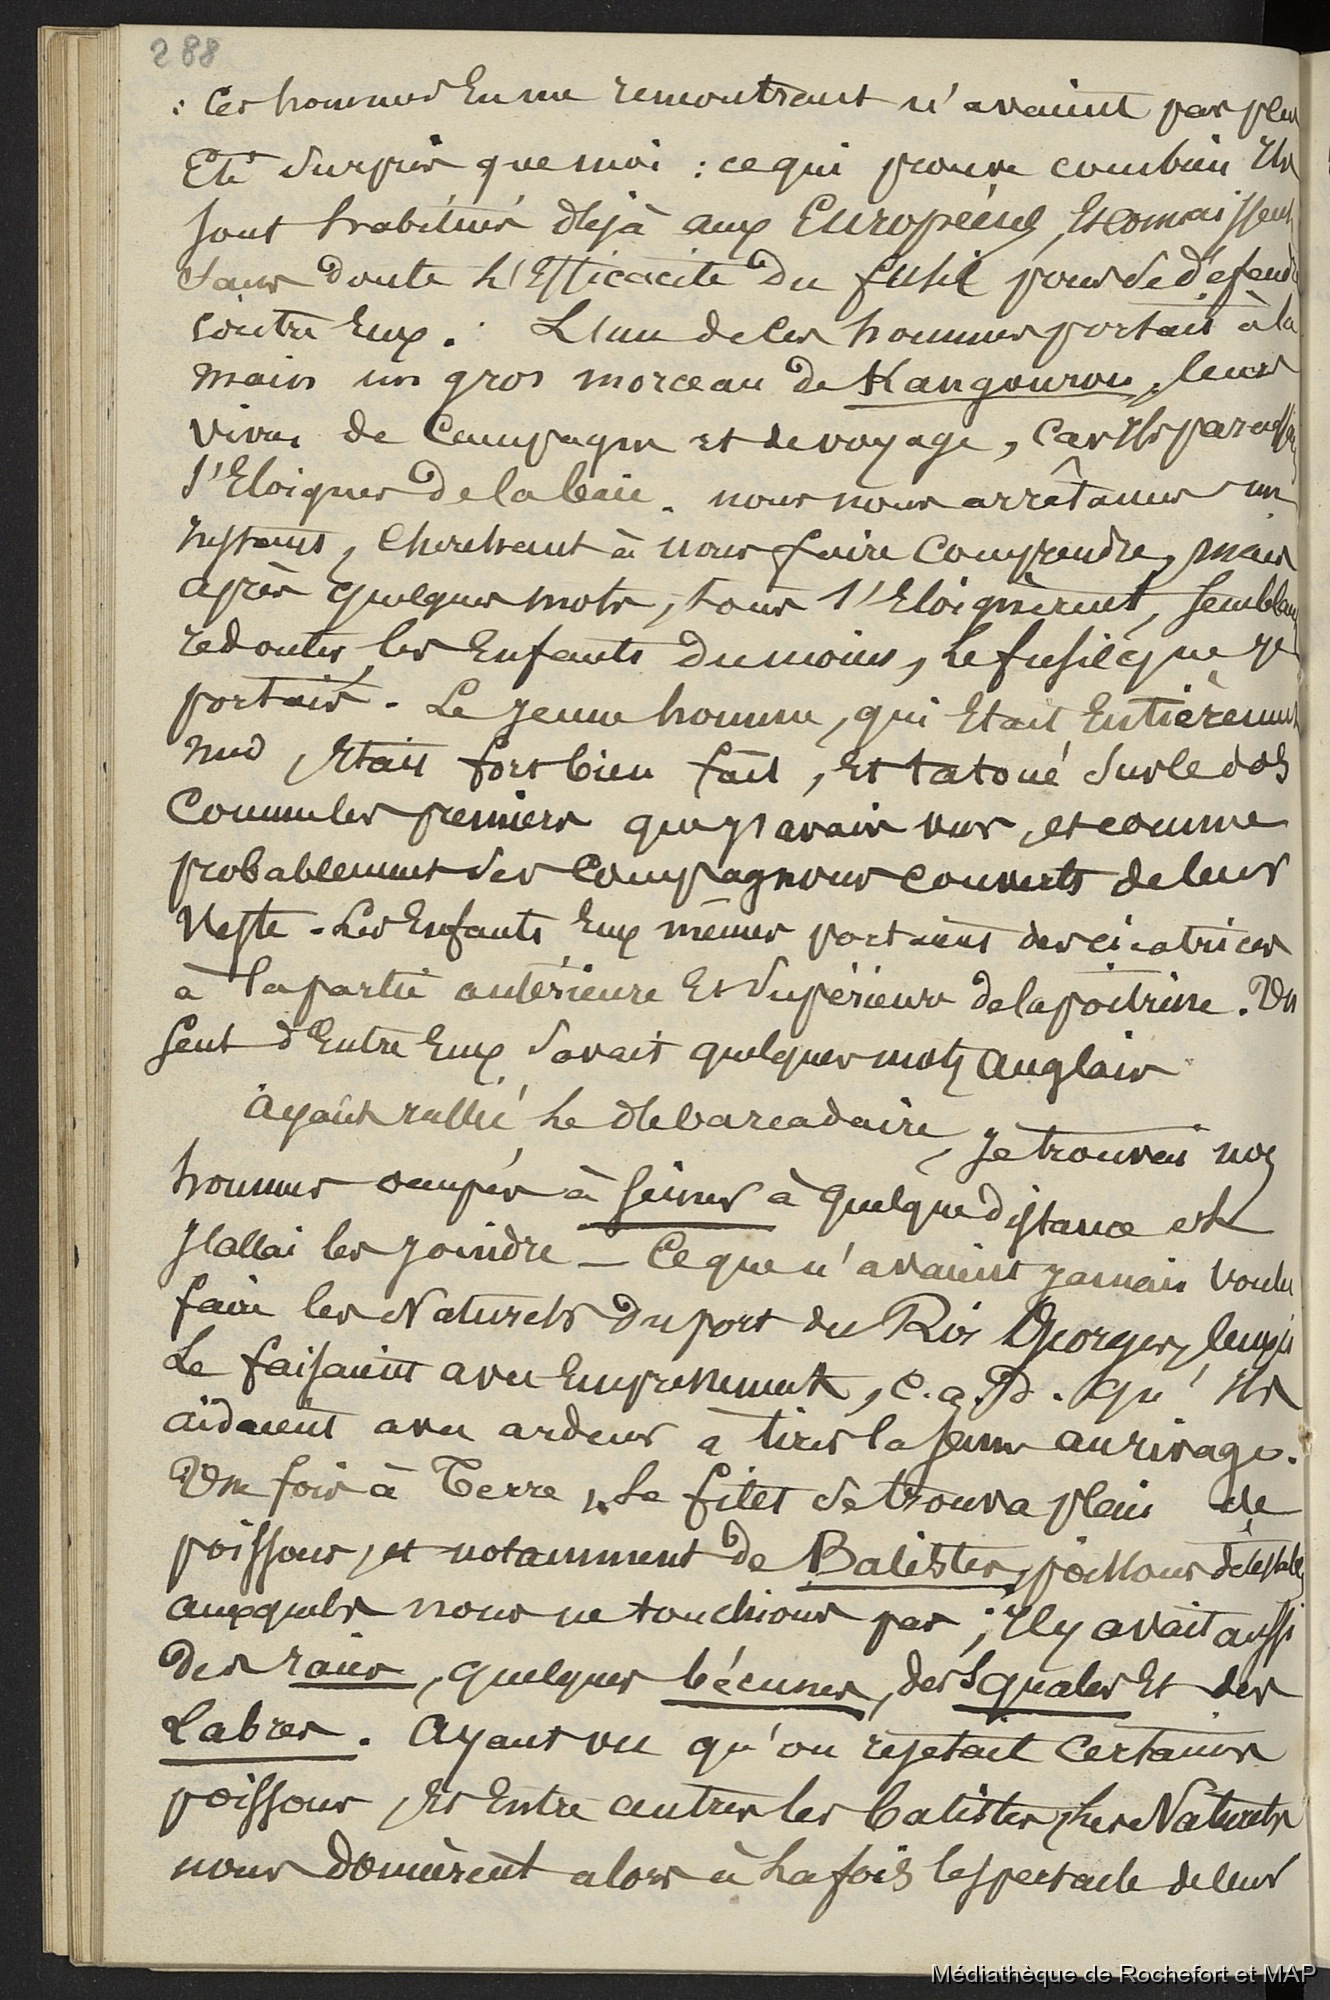 288
: ces hommes En me rencontrant n'avaient pas plus
Eté surpris que moi : ce qui prouve combien Ils
sont habitués déjà aux Européens, Et connaissent
sans doute L'Efficacité Du fusil pour se défendre
contre Eux. L'un de ces hommes portait à la
main un gros morceau de Kangourou, leurs
vivres de campagne et de voyage, car Ils paraissaient
s'Eloigner De la baie. nous nous arrêtames un
Instant, cherchant à nous faire comprendre, mais
après quelques mots, tous s'Eloignèrent, semblant
redouter, les Enfants Du moins, Le fusil que je
portais. Le jeune homme, qui Etait Entièrement
nud, Etait fort bien fait, Et tatoué sur le dos
comme les premiers que j'avais vus, et comme
probablement ses compagnons couverts de leur
veste. Les Enfants Eux mêmes portaient des cicatrices
à la partie antérieure Et supérieure de la poitrine. Un
seul d'Entre Eux savait quelques mots anglais
Ayant rallié Le débarcadaire, je trouvai nos
hommes occupés à seiner à quelque distance et
j'allai les joindre — Ce que n'avaient jamais voulu
faire les Naturels Du port du Roi Georges, ceux-ci
Le faisaient avec Empressement, c.a.D. qu'Ils
aidaient avec ardeur a tirer la seine au rivage.
Une fois à Terre, Le filet se trouva plein de
poissons, et notamment de Balistes, poissons détestables
auxquels nous ne touchions pas ; Il y avait aussi
des raies, quelques bécunes, des Squales Et des
Labres. Ayant vu qu'on rejetait certains
poissons, Et Entre autres les balistes, Les Naturels
nous donnèrent alors à La fois le spectacle de leur
Médiathèque de Rochefort et MAP